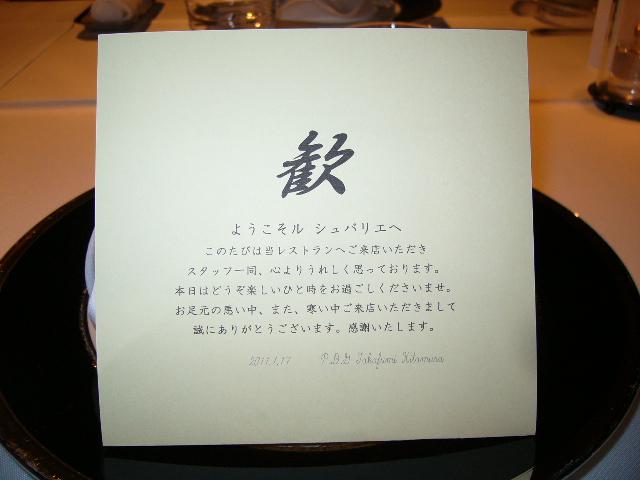 歓
ようこそル シュバリエへ
このたびは当レストランへご来店いただき
スタッフ一同、心よりうれしく思っております。
本日はどうぞ楽しいひと時をお過ごしくださいませ。
お足元の悪い中、また、寒い中ご来店いただきまして
誠にありがとうございます。感謝いたします。
2011.1.17 P.D.G Takafumi Kitamura